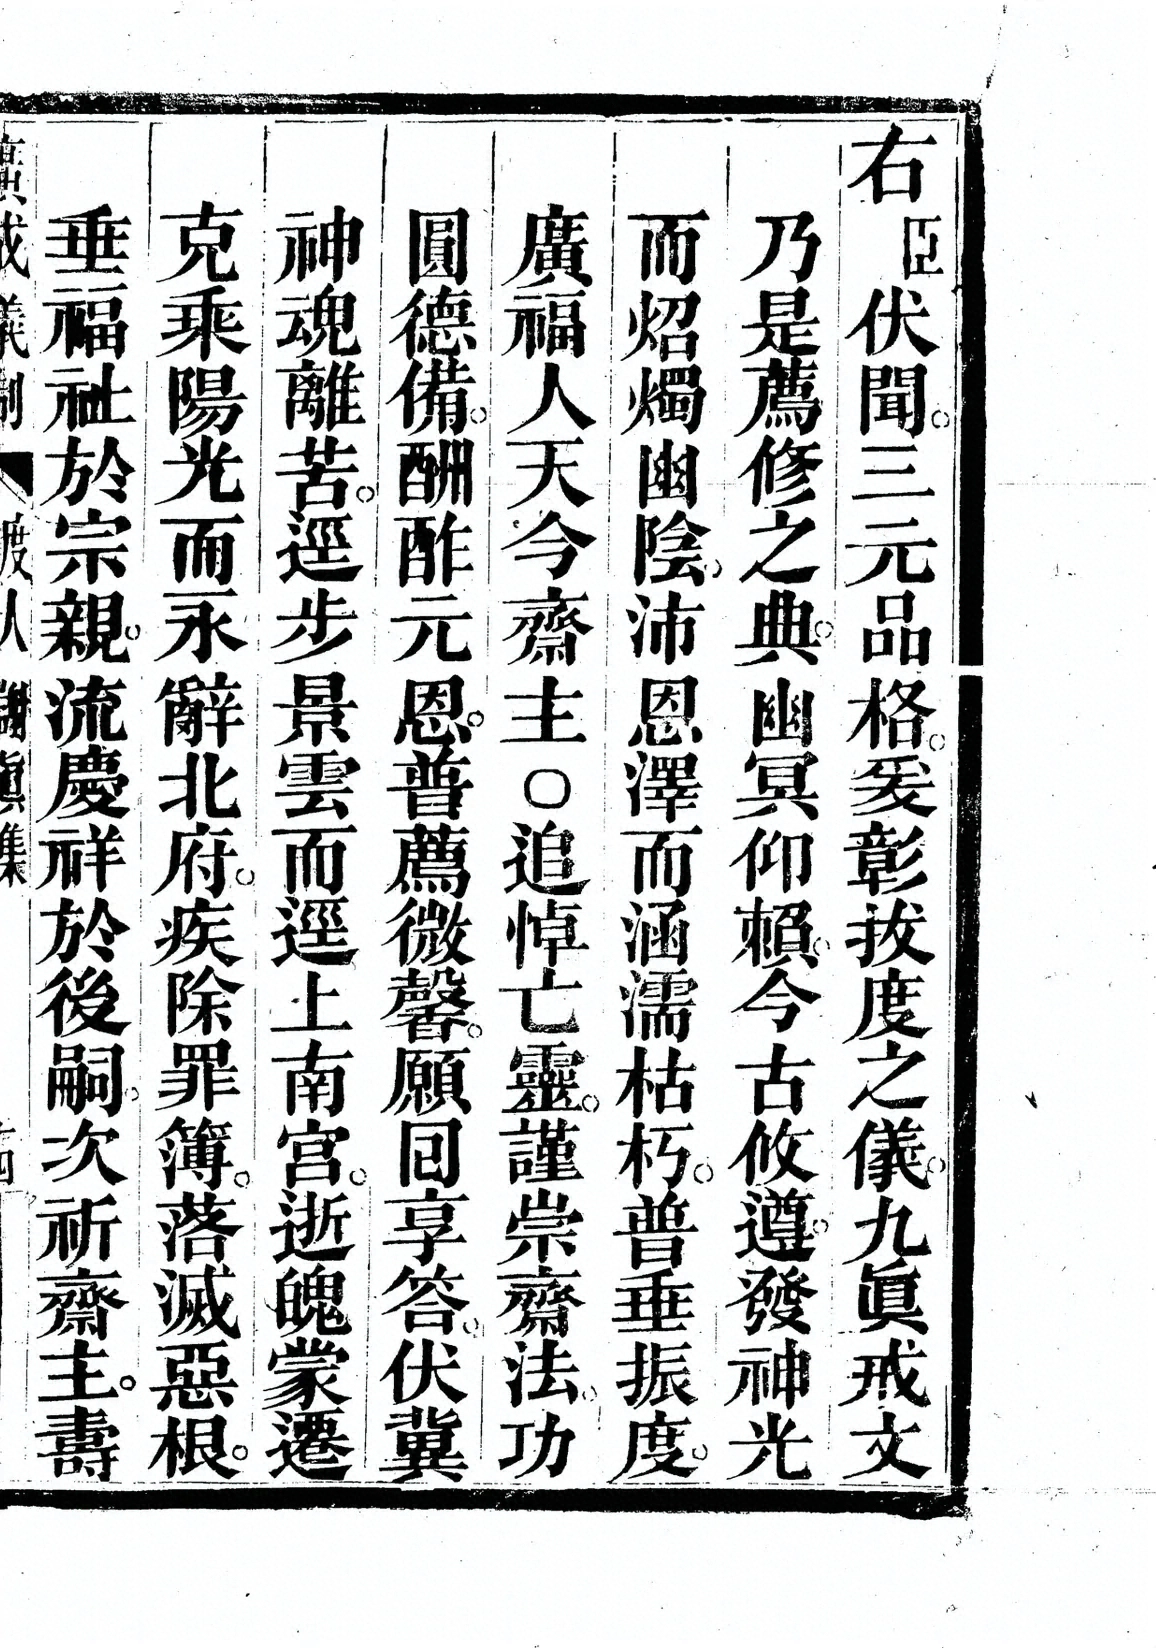 右臣伏聞。三元品格。爰彰拔度之儀。九眞戒文
乃是薦修之典。幽冥仰賴。今古攸遵。發神光
而炤燭幽陰。沛恩澤而涵濡枯朽。普垂振度。
廣福人天今齋主〇追悼亡靈。謹崇齋法。功
圓德備。酬酢元恩。普薦微馨。願回享答。伏冀
神魂離苦。逕步景雲而逕上南宫。逝魄蒙遷
克乘陽光而永辭北府。疾除罪簿。落滅惡根。
垂福祉於宗親。流慶祥於後嗣。次祈齋主。壽
廣成儀制 度人謝眞集